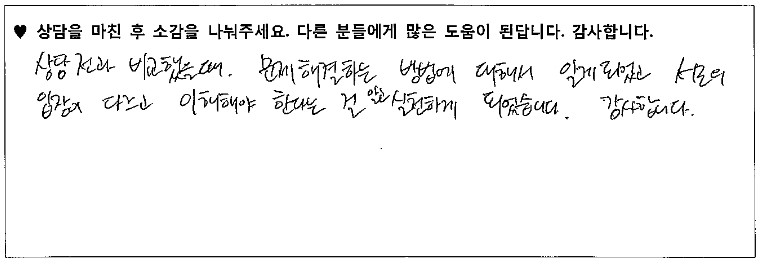 ♥ 상담을 마친 후 소감을 나눠주세요. 다른 분들에게 많은 도움이 된답니다. 감사합니다.
상담 전과 비교했을때. 문제해결하는 방법에 대해서 알게되었고 서로의
입장이 다르고 이해해야 한다는 걸 알고 실천하게 되었습니다. 감사합니다.